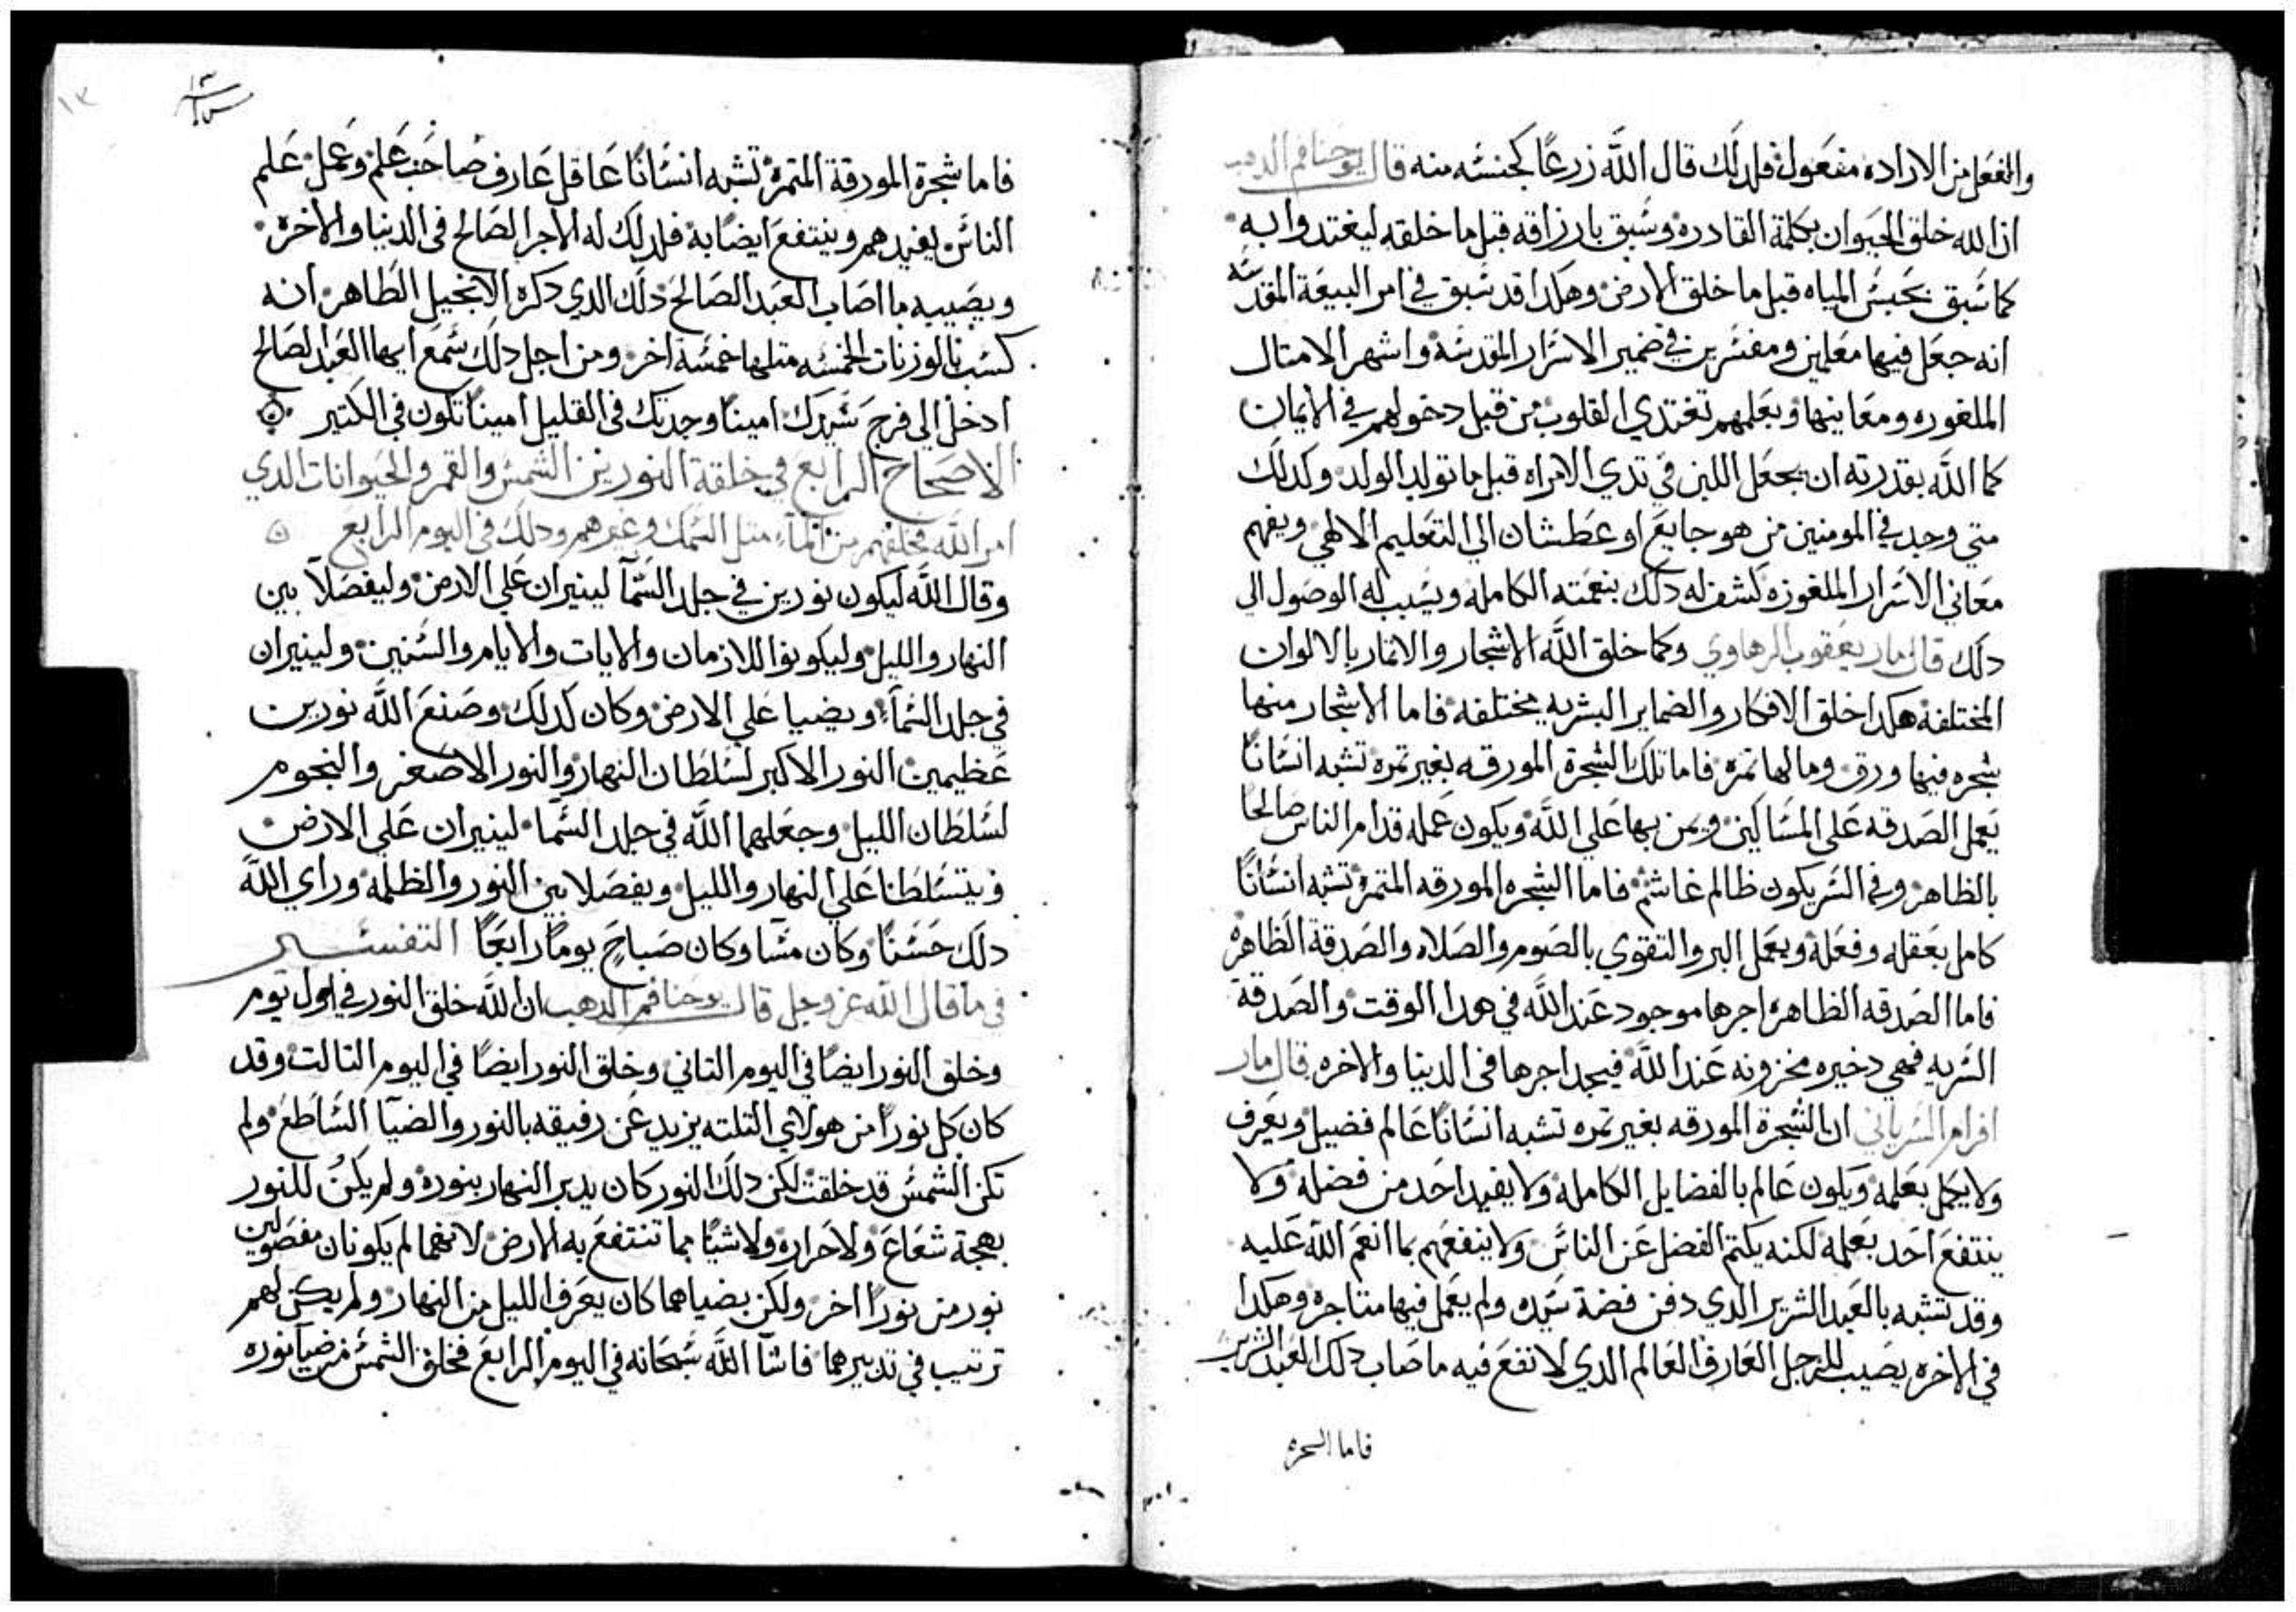 والفعل من الاراده مفعول فلدلك قال الله زرعًا كجنسه منه قال يوحنا فم الدهب
ان الله خلق الحيوان بكلمة القادره وسبق بارزاقه قبل ما خلقه ليغتدوا به
كما سبق بحبس المياه قبل ما خلق الارض وهكدا قد سبق في امر البيعة المقدسه
انه جعل فيها معلمين ومفسرين في ضمير الاسرار المقدسة واشهر الامتال
الملغوزه ومعانيها وبعلمهم تغتدي القلوب من قبل دخولهم في الايمان
كما الله بقدرته ان يجعل اللبن في تدي الامراه قبل ما تولد الولد وكدلك
متى وجد في المومنين من هو جايع او عطشان الى التعليم الالهي ويفهم
معاني الاسرار الملغوزه كشف له دلك بنعمته الكامله ويسبب له الوصول الي
دلك قال مار يعقوب الرهاوي وكما خلق الله الاشجار والاتمار بالالوان
المختلفة هكدا خلق الافكار والضماير البشريه مختلفه فاما الاشجار منها
شجره فيها ورق وما لها تمرة فاما تلك الشجرة المورقه بغير تمره تشبه انسانًا
يعمل الصدقه على المساكين ويمن بها على الله ويكون عمله قدام الناس صالحا
بالظاهر وفي السر يكون ظالم غاشم فاما الشجره المورقه المتمرة تشبه انسانًا
كامل بعقله وفعله ويعمل البر والتقوي بالصوم والصلاه والصدقة الظاهرة
فاما الصدقه الظاهره اجرها موجود عند الله في هدا الوقت والصدقة
السريه فهي دخيره مخزونه عند الله فيجد اجرها في الدنيا والاخره قال مار
افرام السرياني ان الشجرة المورقه بغير تمره تشبه انسانًا عالم فضيل ويعرف
ولا يعمل بعلمه ويكون عالم بالفضايل الكامله ولا يفيد احد من فضله ولا
ينتفع احد بعلمه لكنه يكتم الفضل عن الناس ولا ينفعهم بما انعم الله عليه
وقد تشبه بالعبد الشرير الدي دفن فضة سيده ولم يعمل فيها متاجره وهكدا
في الاخره يصيب للرجل العارف العالم الدي لا نفع فيه ما صاب دلك العبد الشرير
فاما السحره
١٣
١٣
فاما شجرة المورقة المتمرة تشبه انسانًا عاقل عارف صاحب علم وعمل علم
الناس يفيدهم وينتفع ايضًا به فلدلك له الاجر الصالح في الدنيا والاخره
ويصيبه ما اصاب العبد الصالح دلك الدي دكره الانجيل الطاهر انه
كسب بالوزنات الخمسه متلها خمسة اخر ومن اجل دلك سمع ايها العبد الصالح
ادخل الى فرح سيدك امينا وجدتك في القليل امينًا تكون في الكتير
الاصحاح الرابع في خلقة النورين الشمس والقمر والحيوانات الدي
امر الله فخلقهم من الماء متل السمك وغيرهم ودلك في اليوم الرابع
وقال الله ليكون نورين في جلد السمآ لينيران علي الارض وليفصلا بين
النهار والليل وليكونوا للازمان والايات والايام والسنين ولينيران
في جلد السمآء ويضيا علي الارض وكان كدلك وصنع الله نورين
عظيمين النور الاكبر لسلطان النهار والنور الاصغر والنجوم
لسلطان الليل وجعلهما الله في جلد السما لينيران علي الارض
ويتسلطا علي النهار والليل ويفصلا بين النور والظلمه وراي الله
دلك حسنًا وكان مسا وكان صباح يومًا رابعًا التفسير
في ما قال الله عز وجل قال يوحنا فم الدهب ان الله خلق النور في اول يوم
وخلق النور ايضًا في اليوم التاني وخلق النور ايضًا في اليوم التالت وقد
كان كل نورًا من هولاي التلته يزيد عن رفيقه بالنور والضيآ الساطع ولم
تكن الشمس قد خلقت لكن دلك النور كان يدبر النهار بنوره ولم يكن للنور
بهجة شعاع ولا حراره ولا شيًا مما تنتفع به الارض لانهما لم يكونان مفصولين
نور من نورًا اخر ولكن بضياهما كان يعرف الليل من النهار ولم يكن لهم
ترتيب في تدبيرهما فاشآ الله سبحانه في اليوم الرابع فخلق الشمس من ضيآ نوره